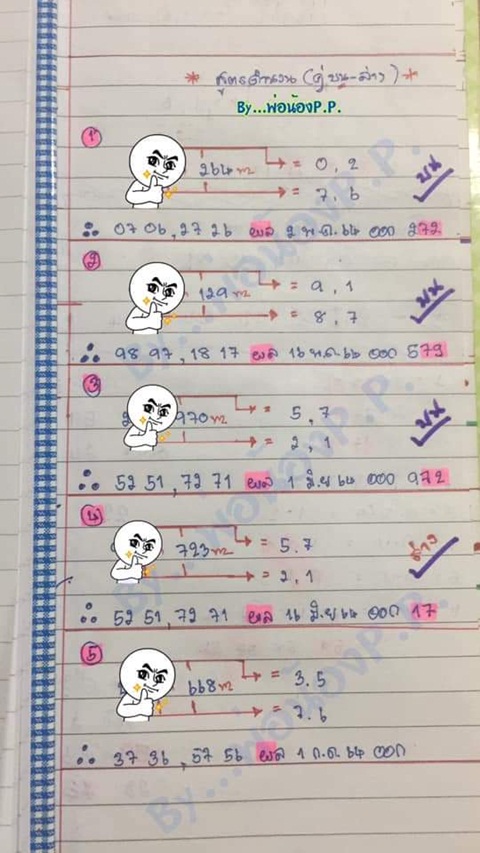 * สูตรคำนวน (คู่ บน-ล่าง) *
By...พ่อน้องP.P.
1
264 = 0, 2
= 7, 6
บน
∴ 07 06, 27 26 ผล 2 พ.ค. 64 ออก 272
2
129 = 9, 1
= 8, 7
บน
∴ 98 97, 18 17 ผล 16 พ.ค. 64 ออก 579
3
970 = 5, 7
= 2, 1
บน
∴ 52 51, 72 71 ผล 1 มิ.ย 64 ออก 972
4
723 = 5.7
= 2, 1
ล่าง
∴ 52 51, 72 71 ผล 16 มิ.ย 64 ออก 17
5
668 = 3.5
= 7.6
∴ 37 36, 57 56 ผล 1 ก.ค. 64 ออก
By...พ่อน้องP.P.